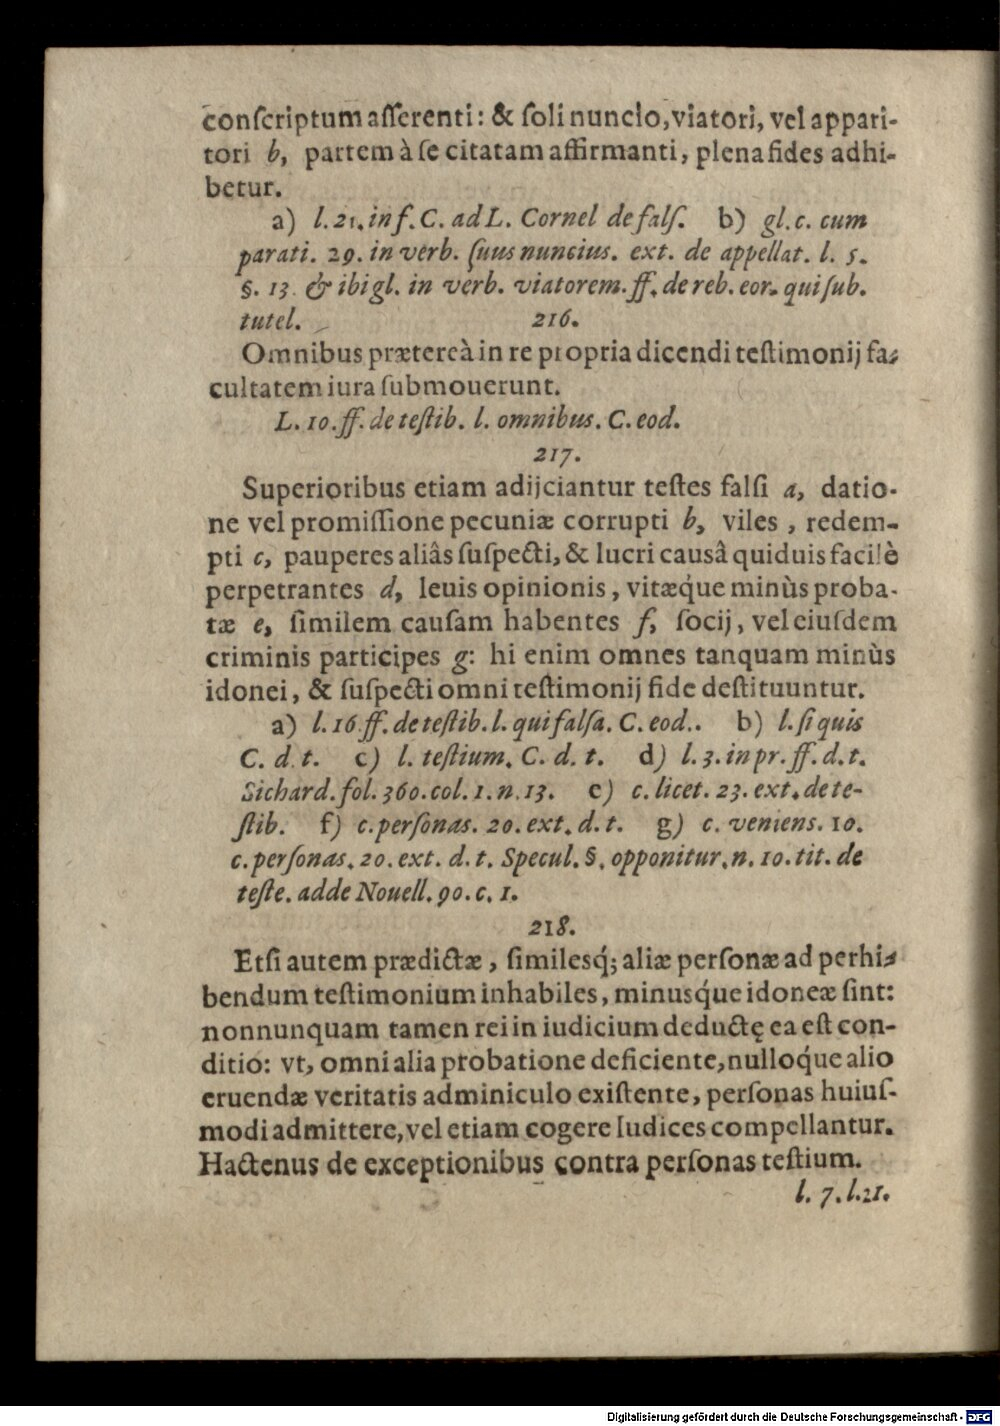 conſcriptum aſſerenti: & ſoli nuncio, viatori, vel appari-
tori b, partem à ſe citatam affirmanti, plena fides adhi-
betur.
a) l. 21. in f. C. ad L. Cornel de falſ. b) gl. c. cum
parati. 29. in verb. ſuus nuncius. ext. de appellat. l. 5.
§. 13. & ibi gl. in verb. viatorem. ff. de reb. eor. qui ſub.
tutel.
216.
Omnibus prætereà in re propria dicendi teſtimonij fa-
cultatem iura ſubmouerunt.
L. 10. ff. de teſtib. l. omnibus. C. eod.
217.
Superioribus etiam adijciantur teſtes falſi a, datio-
ne vel promiſſione pecuniæ corrupti b, viles, redem-
pti c, pauperes aliâs ſuſpecti, & lucri causâ quiduis facilè
perpetrantes d, leuis opinionis, vitæque minùs proba-
tæ e, ſimilem cauſam habentes f, ſocij, vel eiuſdem
criminis participes g: hi enim omnes tanquam minùs
idonei, & ſuſpecti omni teſtimonij fide deſtituuntur.
a) l. 16 ff. de teſtib. l. qui falſa. C. eod.. b) l. ſi quis
C. d. t. c) l. teſtium. C. d. t. d) l. 3. in pr. ff. d. t.
Sichard. fol. 360. col. 1. n. 13. e) c. licet. 23. ext. de te-
ſtib. f) c. perſonas. 20. ext. d. t. g) c. veniens. 10.
c. perſonas. 20. ext. d. t. Specul. §. opponitur. n. 10. tit. de
teſte. adde Nouell. 90. c. 1.
218.
Etſi autem prædictæ, ſimilesq́; aliæ perſonæ ad perhi-
bendum teſtimonium inhabiles, minusq́ue idoneæ ſint:
nonnunquam tamen rei in iudicium deductę ea eſt con-
ditio: vt, omni alia probatione deficiente, nulloq́ue alio
eruendæ veritatis adminiculo exiſtente, perſonas huiuſ-
modi admittere, vel etiam cogere Iudices compellantur.
Hactenus de exceptionibus contra perſonas teſtium.
l. 7. l. 21.
Digitalisierung gefördert durch die Deutsche Forschungsgemeinschaft - DFG